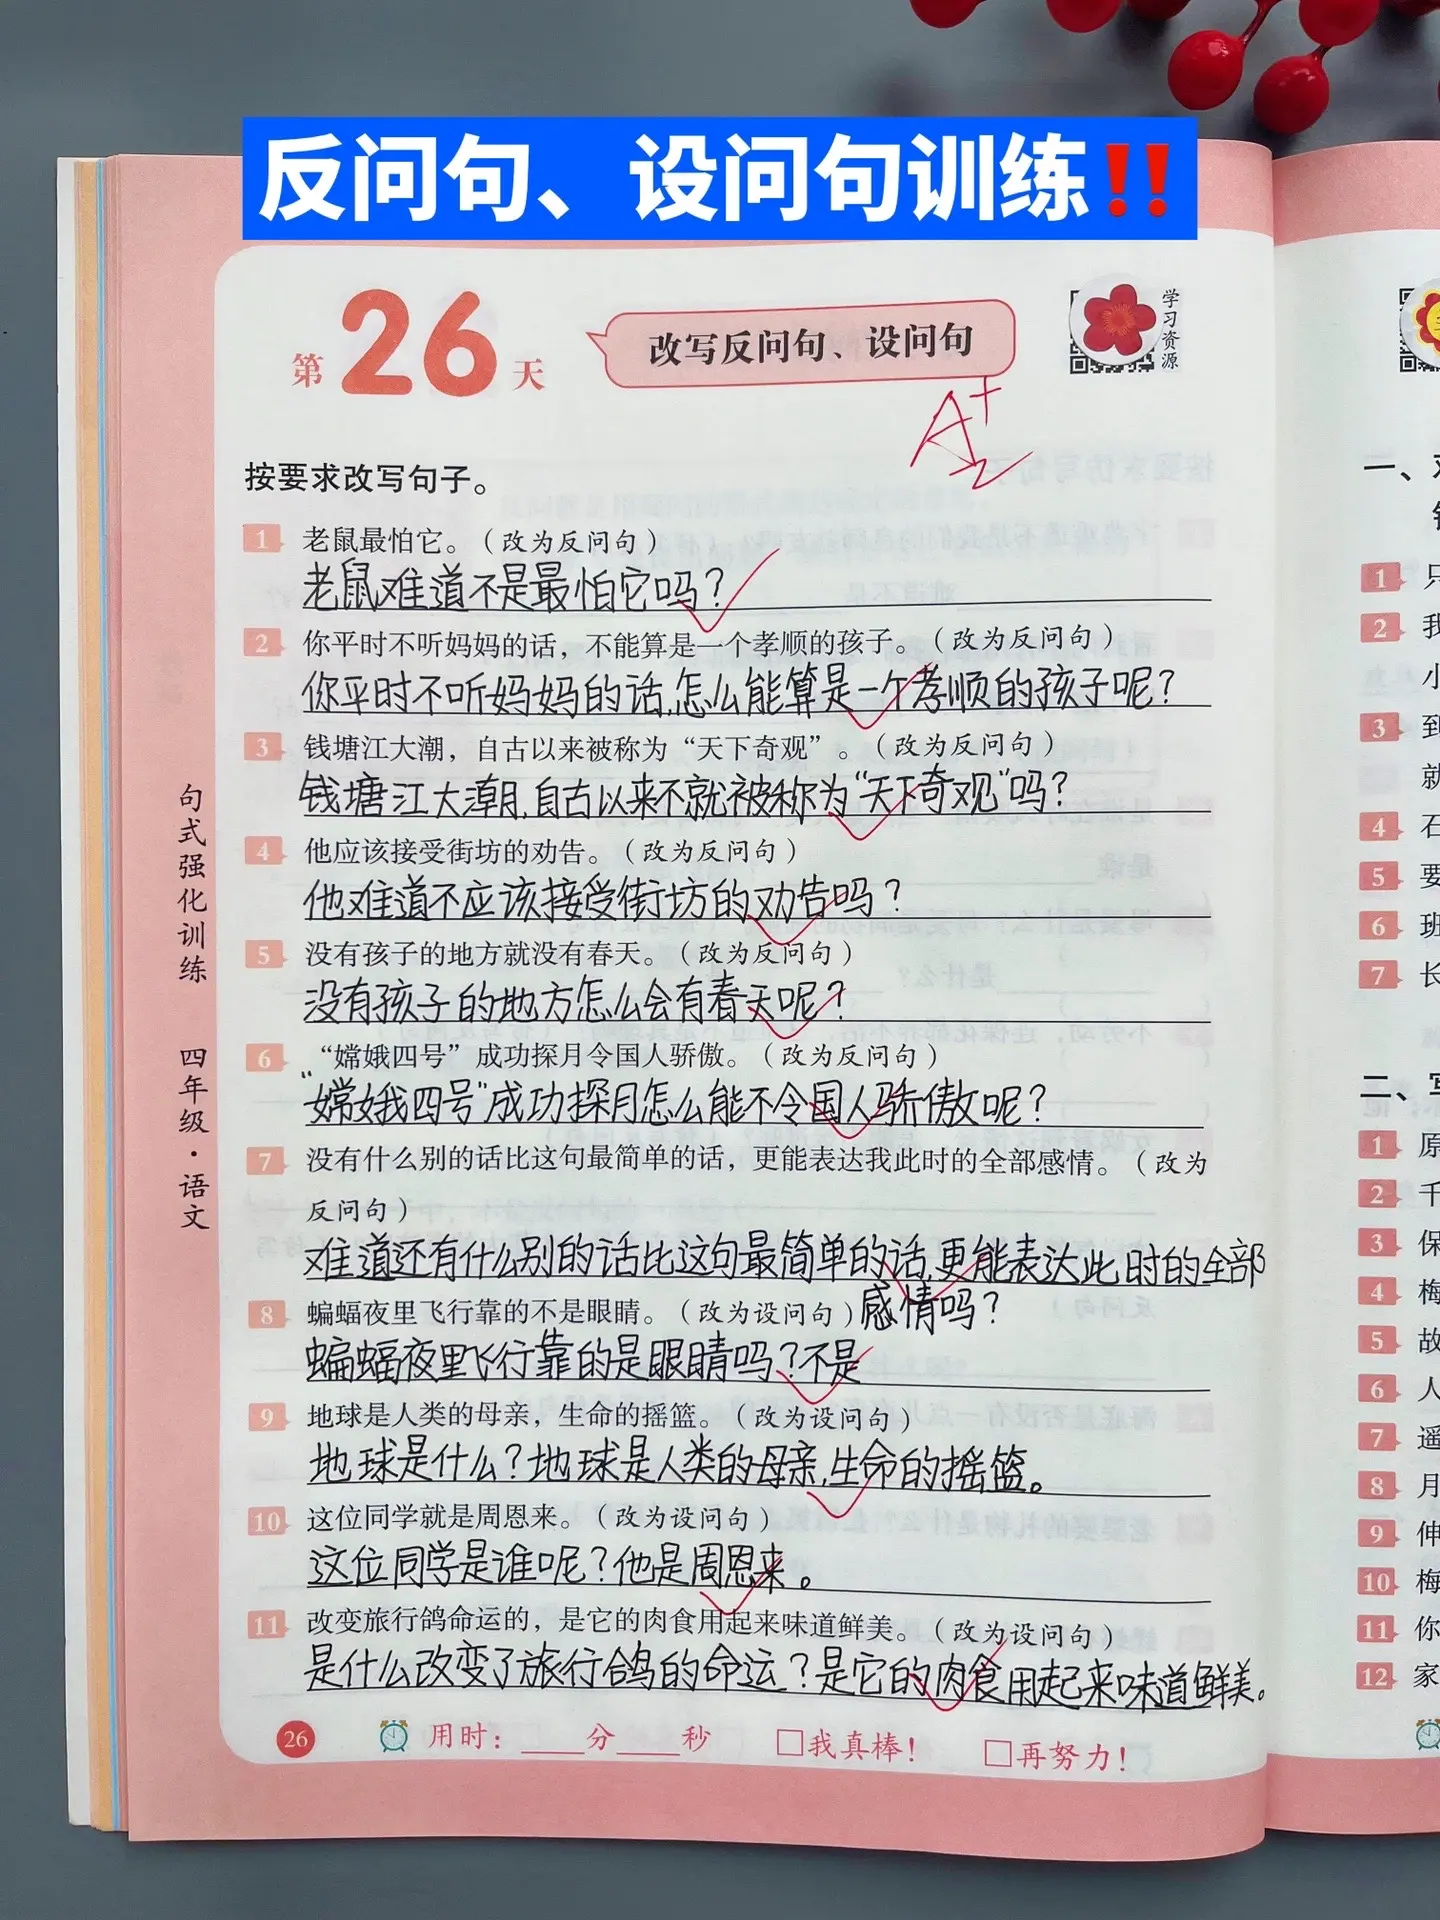 反问句、设问句训练‼️
第26天
改写反问句、设问句
学习资源
A+
按要求改写句子。
1 老鼠最怕它。（改为反问句）
老鼠难道不是最怕它吗？
2 你平时不听妈妈的话，不能算是一个孝顺的孩子。（改为反问句）
你平时不听妈妈的话,怎么能算是一个孝顺的孩子呢？
3 钱塘江大潮，自古以来被称为“天下奇观”。（改为反问句）
钱塘江大潮,自古以来不就被称为“天下奇观”吗？
4 他应该接受街坊的劝告。（改为反问句）
他难道不应该接受街坊的劝告吗？
5 没有孩子的地方就没有春天。（改为反问句）
没有孩子的地方怎么会有春天呢？
6 “嫦娥四号”成功探月令国人骄傲。（改为反问句）
“嫦娥四号”成功探月怎么能不令国人骄傲呢？
7 没有什么别的话比这句最简单的话，更能表达我此时的全部感情。（改为
反问句）
难道还有什么别的话比这句最简单的话,更能表达此时的全部
感情吗？
8 蝙蝠夜里飞行靠的不是眼睛。（改为设问句）
蝙蝠夜里飞行靠的是眼睛吗？不是
9 地球是人类的母亲，生命的摇篮。（改为设问句）
地球是什么？地球是人类的母亲,生命的摇篮。
10 这位同学就是周恩来。（改为设问句）
这位同学是谁呢？他是周恩来。
11 改变旅行鸽命运的，是它的肉食用起来味道鲜美。（改为设问句）
是什么改变了旅行鸽的命运？是它的肉食用起来味道鲜美。
26 用时：____分____秒 □我真棒！ □再努力！
句式强化训练 四年级·语文
一、
1 只
2 我
小
3 到
就
4 石
5 要
6 班
7 长
二、写
1 原
2 千
3 保
4 梅
5 故
6 人
7 遥
8 月
9 伸
10 梅
11 你
12 家